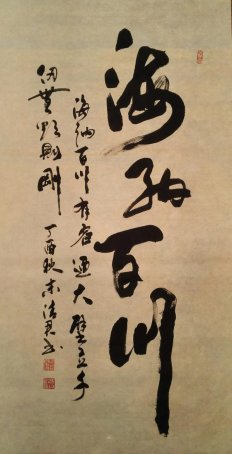 海納百川
海納百川有容迺大壁立千
仞無欲則剛 丁酉秋